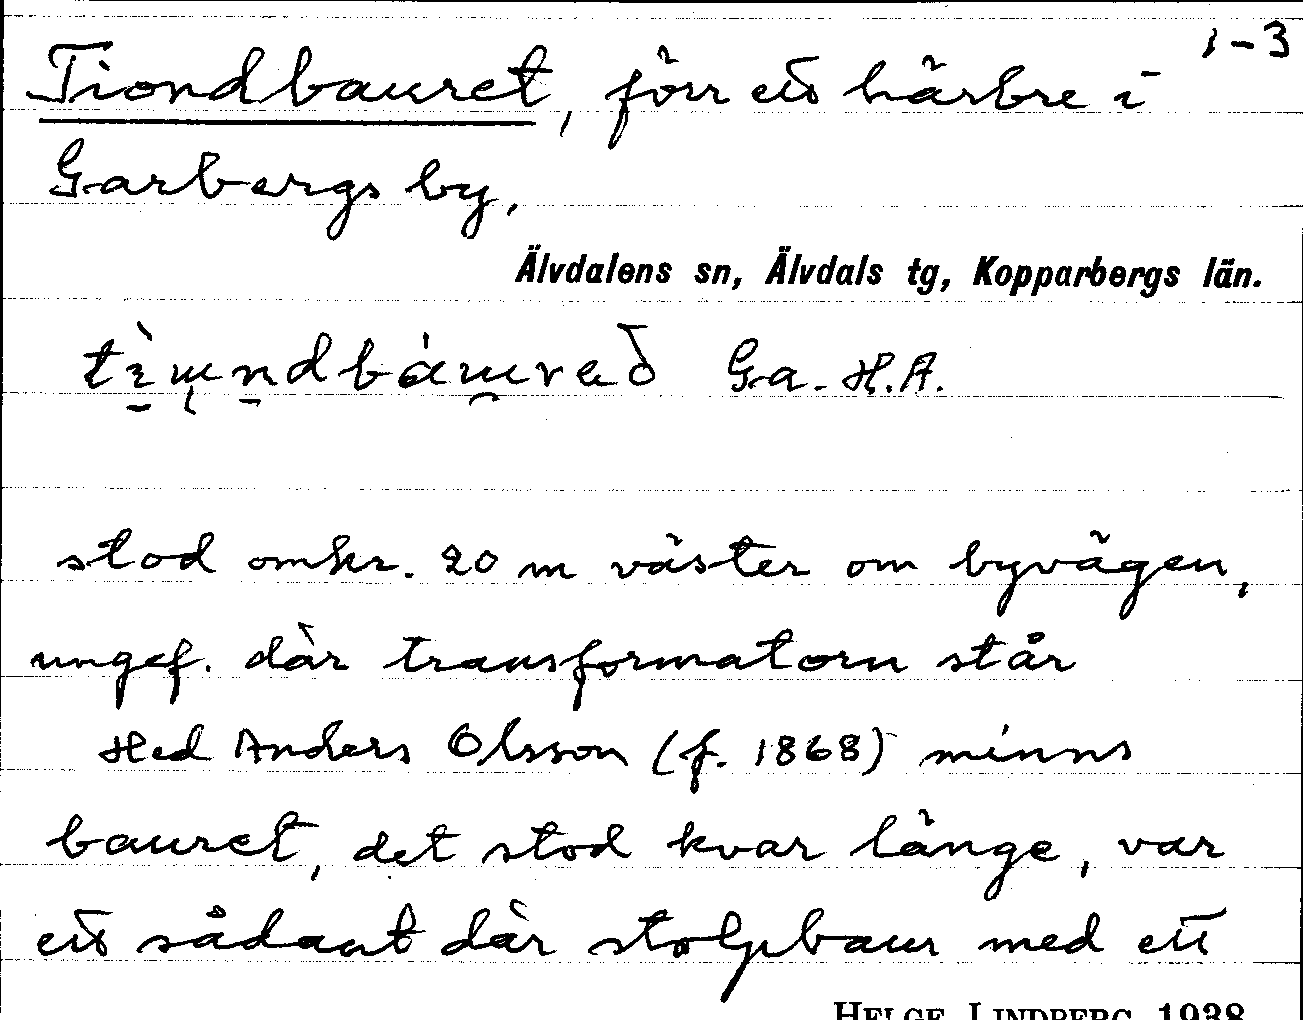 1-3
Tiondbauret, förr ett härbre i
Garbergs by,
Älvdalens sn, Älvdals tg, Kopparbergs län.
Ga. H.A.
stod omkr. 20 m väster om byvägen,
ungef. där transformatorn står
Hed Anders Olsson (f. 1868) minns
bauret, det stod kvar länge, var
ett sådant där stolpbaur med ett
HELGE LINDBERG 1938